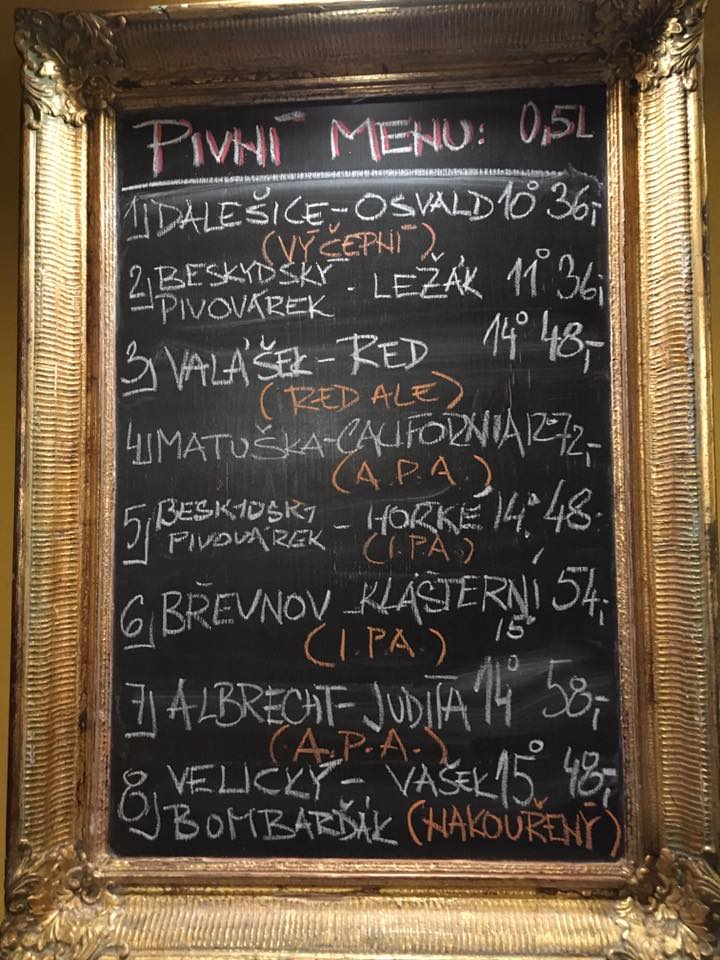 PIVNÍ MENU: 0,5L
1) DALEŠICE-OSVALD 10° 36,-
(VÝČEPNÍ)
2) BESKYDSKÝ PIVOVÁREK - LEŽÁK 11° 36,-
3) VALÁŠEK-RED 14° 48,-
(RED ALE)
4) MATUŠKA-CALIFORNIA 12° 72,-
(A.P.A)
5) BESKYDSKÝ PIVOVÁREK - HORKÉ 14° 48.-
(IPA)
6) BŘEVNOV - KLÁŠTERNÍ 54,-
15°
(IPA)
7) ALBRECHT-JUDITA 14° 58,-
(A.P.A.)
8) VELICKÝ - VAŠEK 15° 48,-
BOMBARĎÁK (NAKOUŘENÝ)